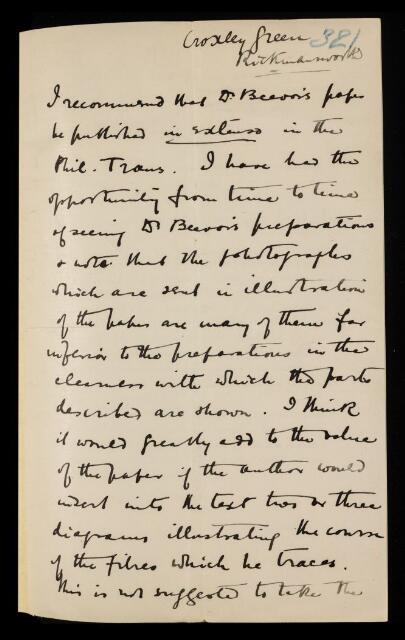 Croxley Green 381
Rickmansworth
I recommend that Dr Beevor's paper
be published in extenso in the
Phil. Trans. I have had the
opportunity from time to time
of seeing Dr Beevor's preparations
& note that the photographs
which are sent in illustration
of the paper are many of them far
inferior to the preparations in the
clearness with which the parts
described are shown. I think
it would greatly add to the value
of the paper if the author would
insert into the text two or three
diagrams illustrating the course
of the fibres which he traces.
This is not suggested to take the